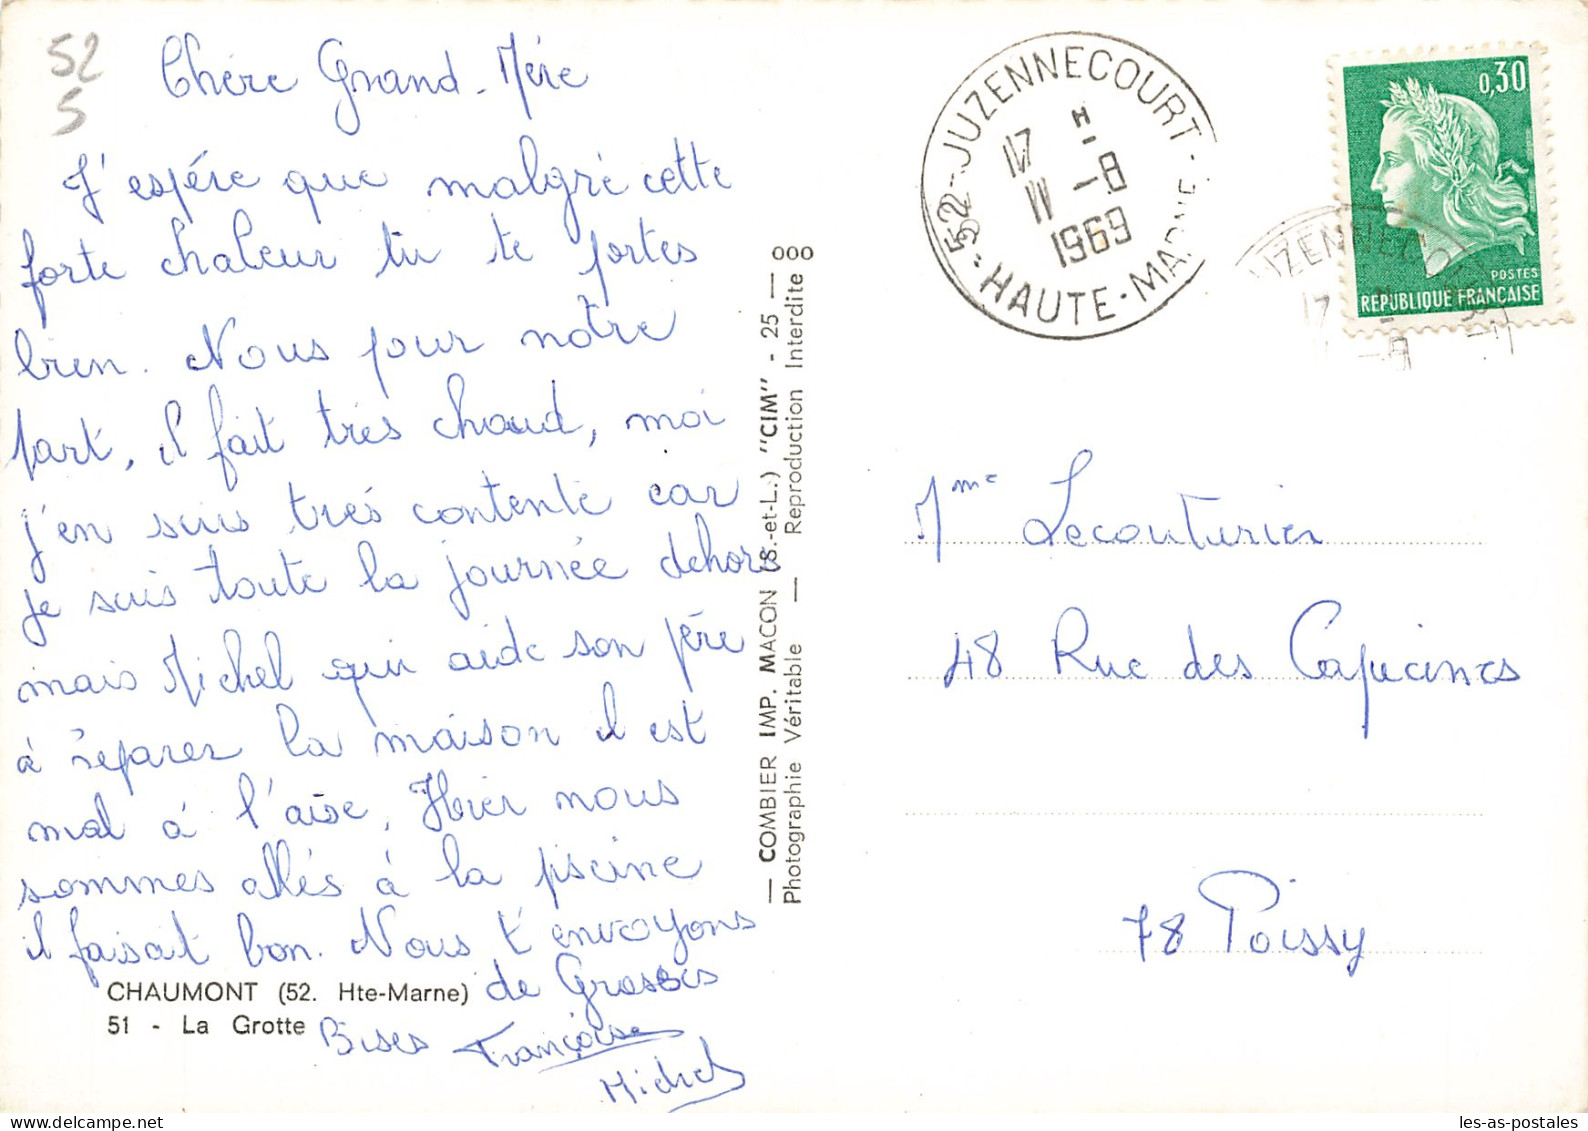 52
5
Chère Grand-Mère
J'espére que malgré cette
forte chaleur tu te portes
bien. Nous pour notre
part, il fait très chaud, moi
j'en suis trés contente car
je suis toute la journée dehors
mais Michel qui aide son père
à réparer la maison il est
mal à l'aise, Hier nous
sommes allés à la piscine
il faisait bon. Nous t'envoyons
de Grosses
Bises Françoise
Michel
CHAUMONT (52. Hte-Marne)
51 - La Grotte
— COMBIER IMP. MACON (S.-et-L.) "CIM" - 25 — 000
Photographie Véritable — Reproduction Interdite
52 - JUZENNECOURT - HAUTE-MARNE
17 H -
11 -8
1969
0,30
POSTES
REPUBLIQUE FRANÇAISE
UZENNECO
17
-8
Mme Lecouturier
48 Rue des Capucines
78 Poissy
les-as-postales
delcampe.net